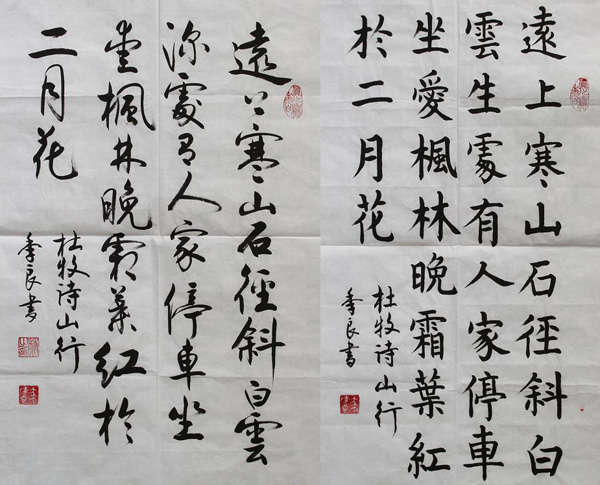 遠上寒山石径斜白
雲生處有人家停車
坐愛楓林晚霜葉紅
於二月花
杜牧诗山行
季良書
遠上寒山石径斜白雲
深處有人家停車坐
愛楓林晚霜葉红於
二月花
杜牧诗山行
季良書